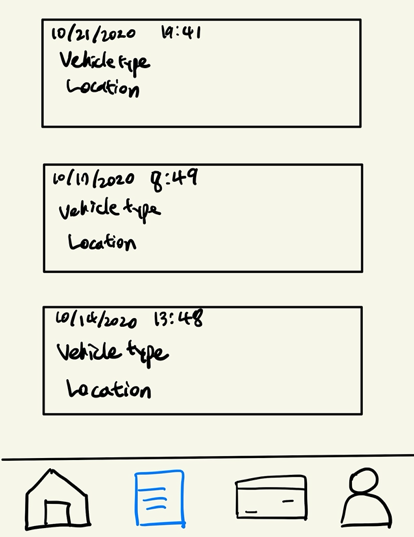 10/21/2020 19:41
Vehicle type
Location
10/17/2020 8:49
Vehicle type
Location
10/14/2020 13:48
Vehicle type
Location